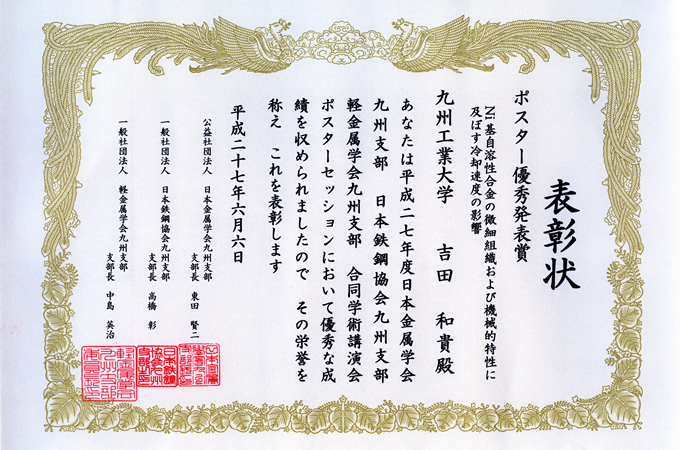 表彰状
ポスター優秀発表賞
Ni基自溶性合金の微細組織および機械的特性に
及ぼす冷却速度の影響
九州工業大学 吉田 和貴殿
あなたは平成二七年度日本金属学会
九州支部 日本鉄鋼協会九州支部
軽金属学会九州支部 合同学術講演会
ポスターセッションにおいて優秀な成
績を収められましたので その栄誉を
称え これを表彰します
平成二十七年六月六日
公益社団法人 日本金属学会九州支部
支部長 東田 賢二
一般社団法人 日本鉄鋼協会九州支部
支部長 高橋 彰
一般社団法人 軽金属学会九州支部
支部長 中島 英治
日本鉄鋼
協会九州